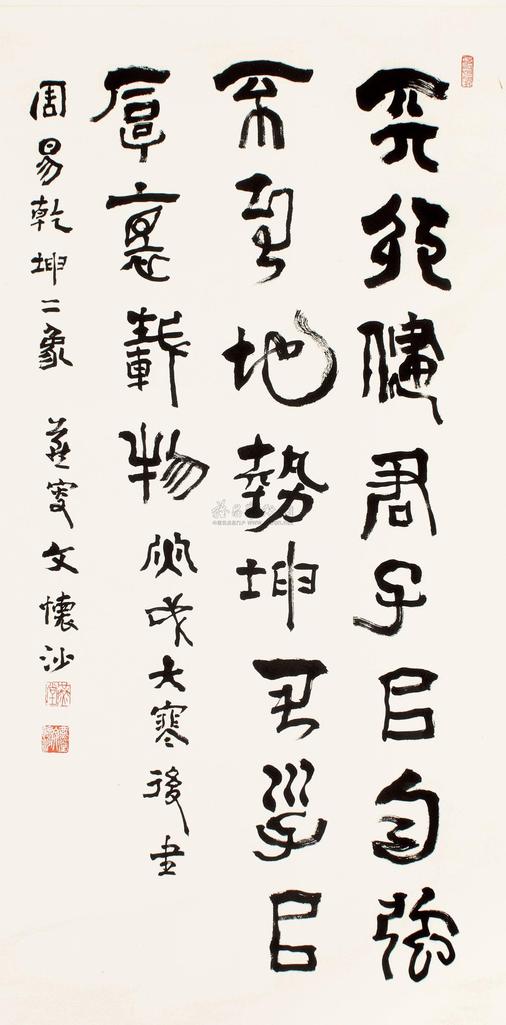 天行健君子㠯自強
不息地勢坤君子㠯
厚悳載物 大寒後書
周易乾坤二象 燕叟文懷沙